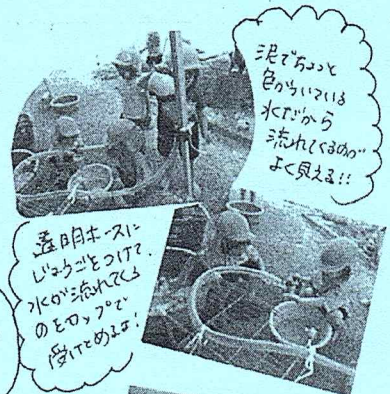 泥でちょっと
色がついている
水だから
流れてくるのが
よく見える!!
透明ホースに
じょうごをつけて、
水が流れてくる
のをカップで
受けとめるよ!